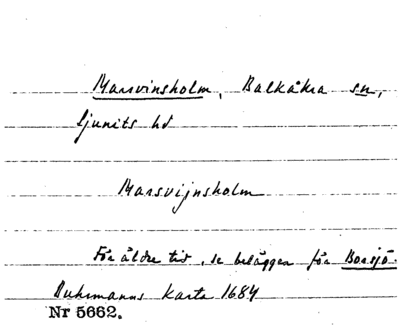 Marsvinsholm, Balkåkra sn,
Ljunits hd
Marsvijnsholm
För äldre tid, se beläggen för Borsjö.
Buhrmanns karta 1684
Nr 5662.